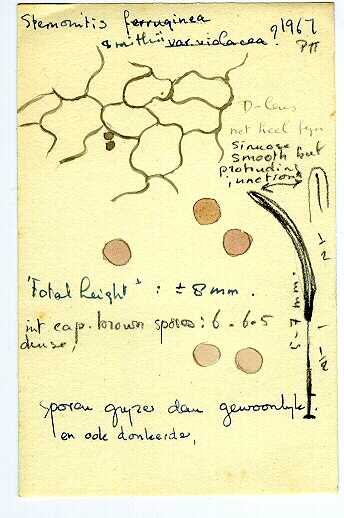 Stemonitis ferruginea
smithii var. violacea? 91967
D-laus
net heel fijn
sinuose
smooth but
protruding
junctions
2
'Total height' : ± 8 mm.
int cap. brown spores: 6 - 6.5
dense,
5-7 mm.
1
1½
Sporen grijzer dan gewoonlijk.
en ook donkerder,